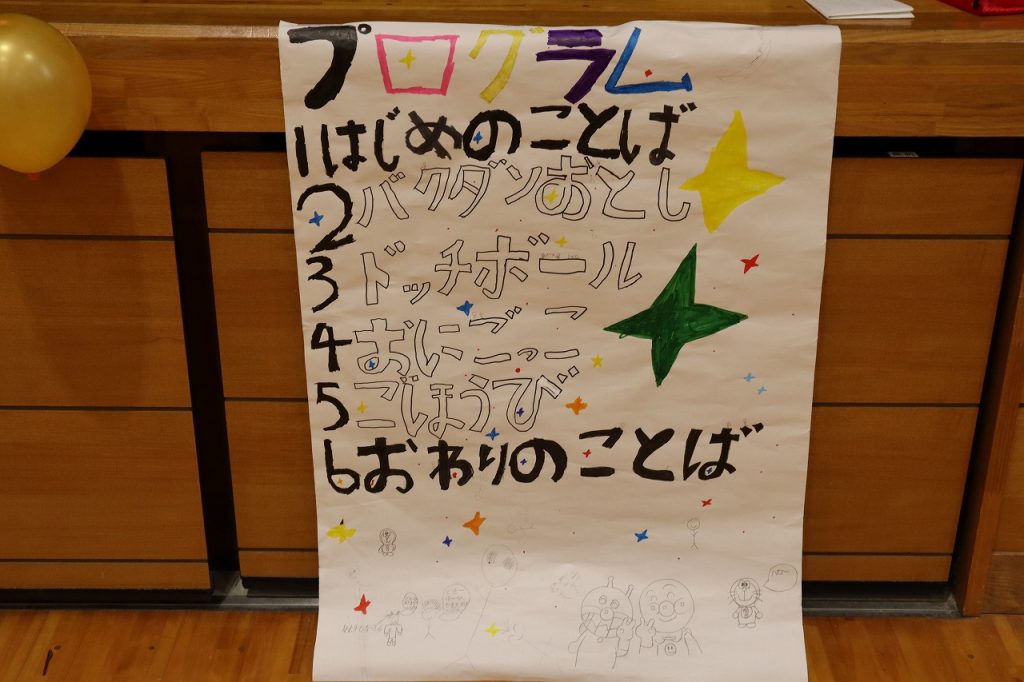 プログラム
1はじめのことば
2バクダンおとし
3ドッチボール
4おにごっこ
5ごほうび
6おわりのことば